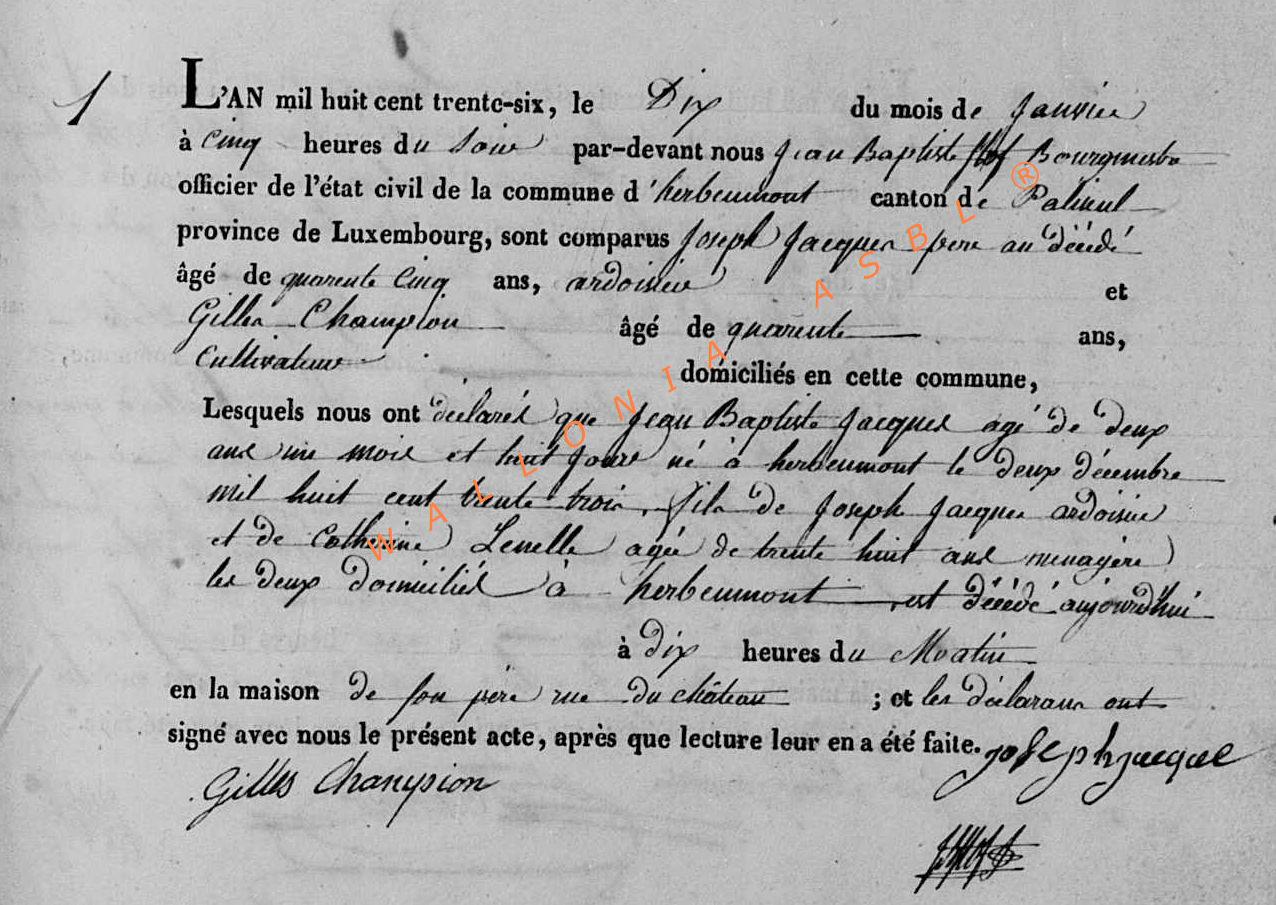 1
L'AN mil huit cent trente-six, le Dix du mois de Janvier
à Cinq heures du Soir par-devant nous Jean Baptiste Bourgmestre
officier de l'état civil de la commune d'herbeumont canton de Paliseul
province de Luxembourg, sont comparus Joseph Jacques pere au décédé
âgé de quarente Cinq ans, ardoisier et
Gilles Champion âgé de quarente ans,
Cultivateur domiciliés en cette commune,
Lesquels nous ont déclarés que Jean Baptiste Jacques agé de deux
ans un mois et huit jours né à herbeumont le deux décembre
mil huit cent trente trois, fils de Joseph Jacques ardoisier
et de Catherine agée de trente huit ans menagère
les deux domiciliés à herbeumont est décédé aujourd'hui
à dix heures du Matin
en la maison de son père rue du château ; et les déclarans ont
signé avec nous le présent acte, après que lecture leur en a été faite. joseph jacque
Gilles Champion
WALLONIA ASBL ®